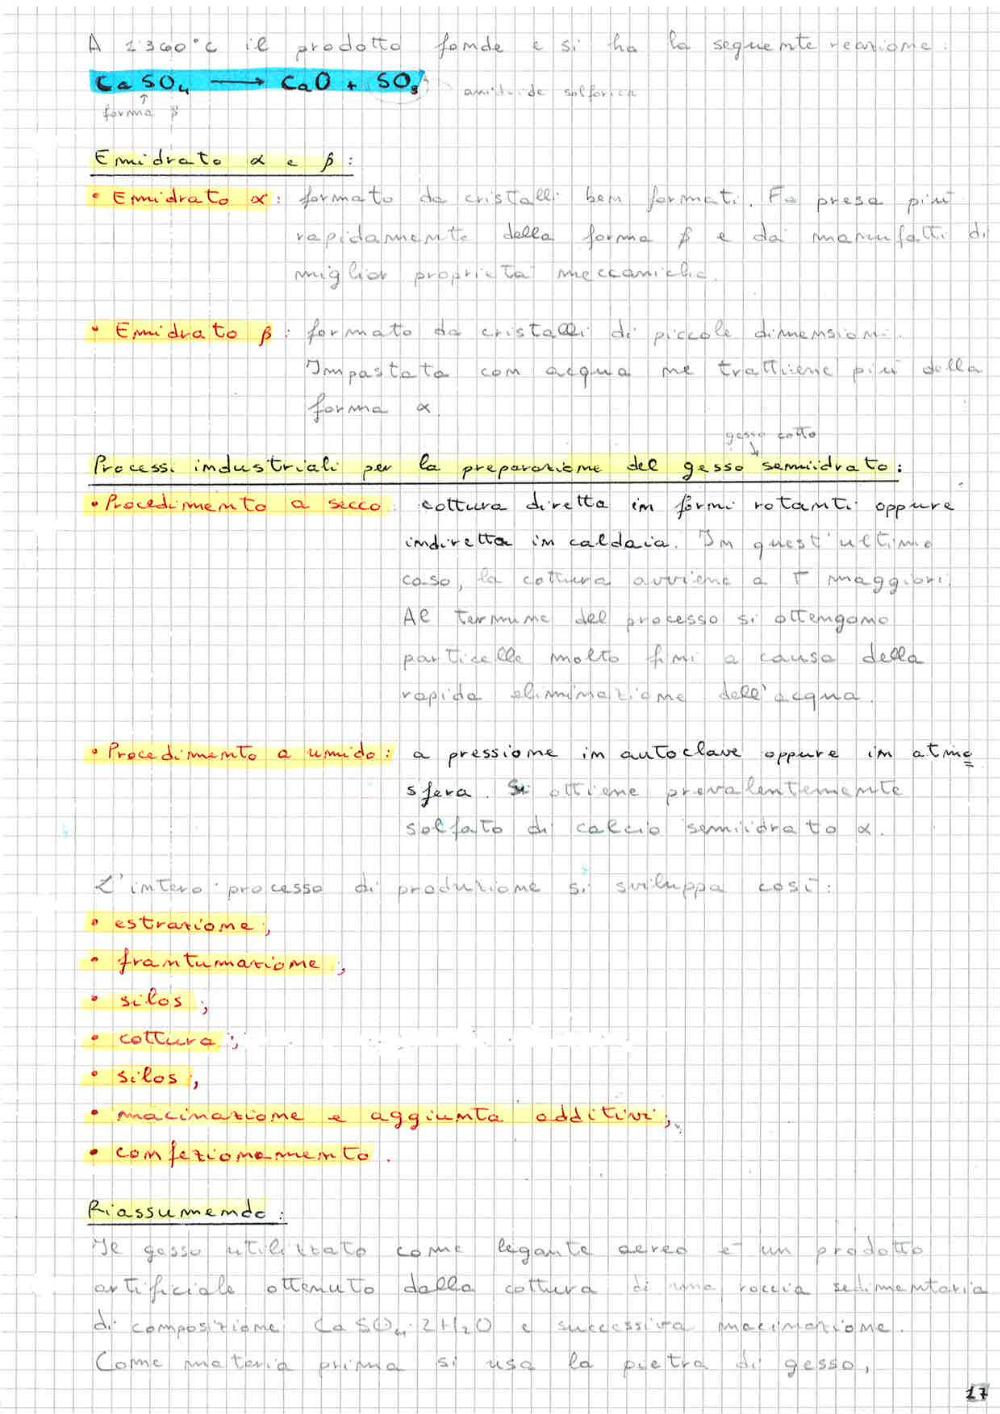 A 1360°C il prodotto fonde e si ha la seguente reazione:
CaSO₄ → CaO + SO₃ anidride solforica
↑
forma β
Emidrato α e β:
• Emidrato α: formato da cristalli ben formati. Fa presa più
rapidamente della forma β e dà manufatti di
miglior proprietà meccaniche.
• Emidrato β: formato da cristalli di piccole dimensioni.
Impastato con acqua ne trattiene più della
forma α.
gesso cotto
Processi industriali per la preparazione del gesso semiidrato:
• Procedimento a secco: cottura diretta in forni rotanti oppure
indiretta in caldaia. In quest'ultimo
caso, la cottura avviene a T maggiori.
Al termine del processo si ottengono
particelle molto fini a causa della
rapida eliminazione dell'acqua.
• Procedimento a umido: a pressione in autoclave oppure in atmo
sfera. Si ottiene prevalentemente
solfato di calcio semiidrato α.
L'intero processo di produzione si sviluppa così:
• estrazione;
• frantumazione;
• silos;
• cottura;
• silos;
• macinazione e aggiunta additivi;
• confezionamento.
Riassumendo:
Il gesso utilizzato come legante aereo è un prodotto
artificiale ottenuto dalla cottura di una roccia sedimentaria
di composizione CaSO₄·2H₂O e successiva macinazione.
Come materia prima si usa la pietra di gesso,
17